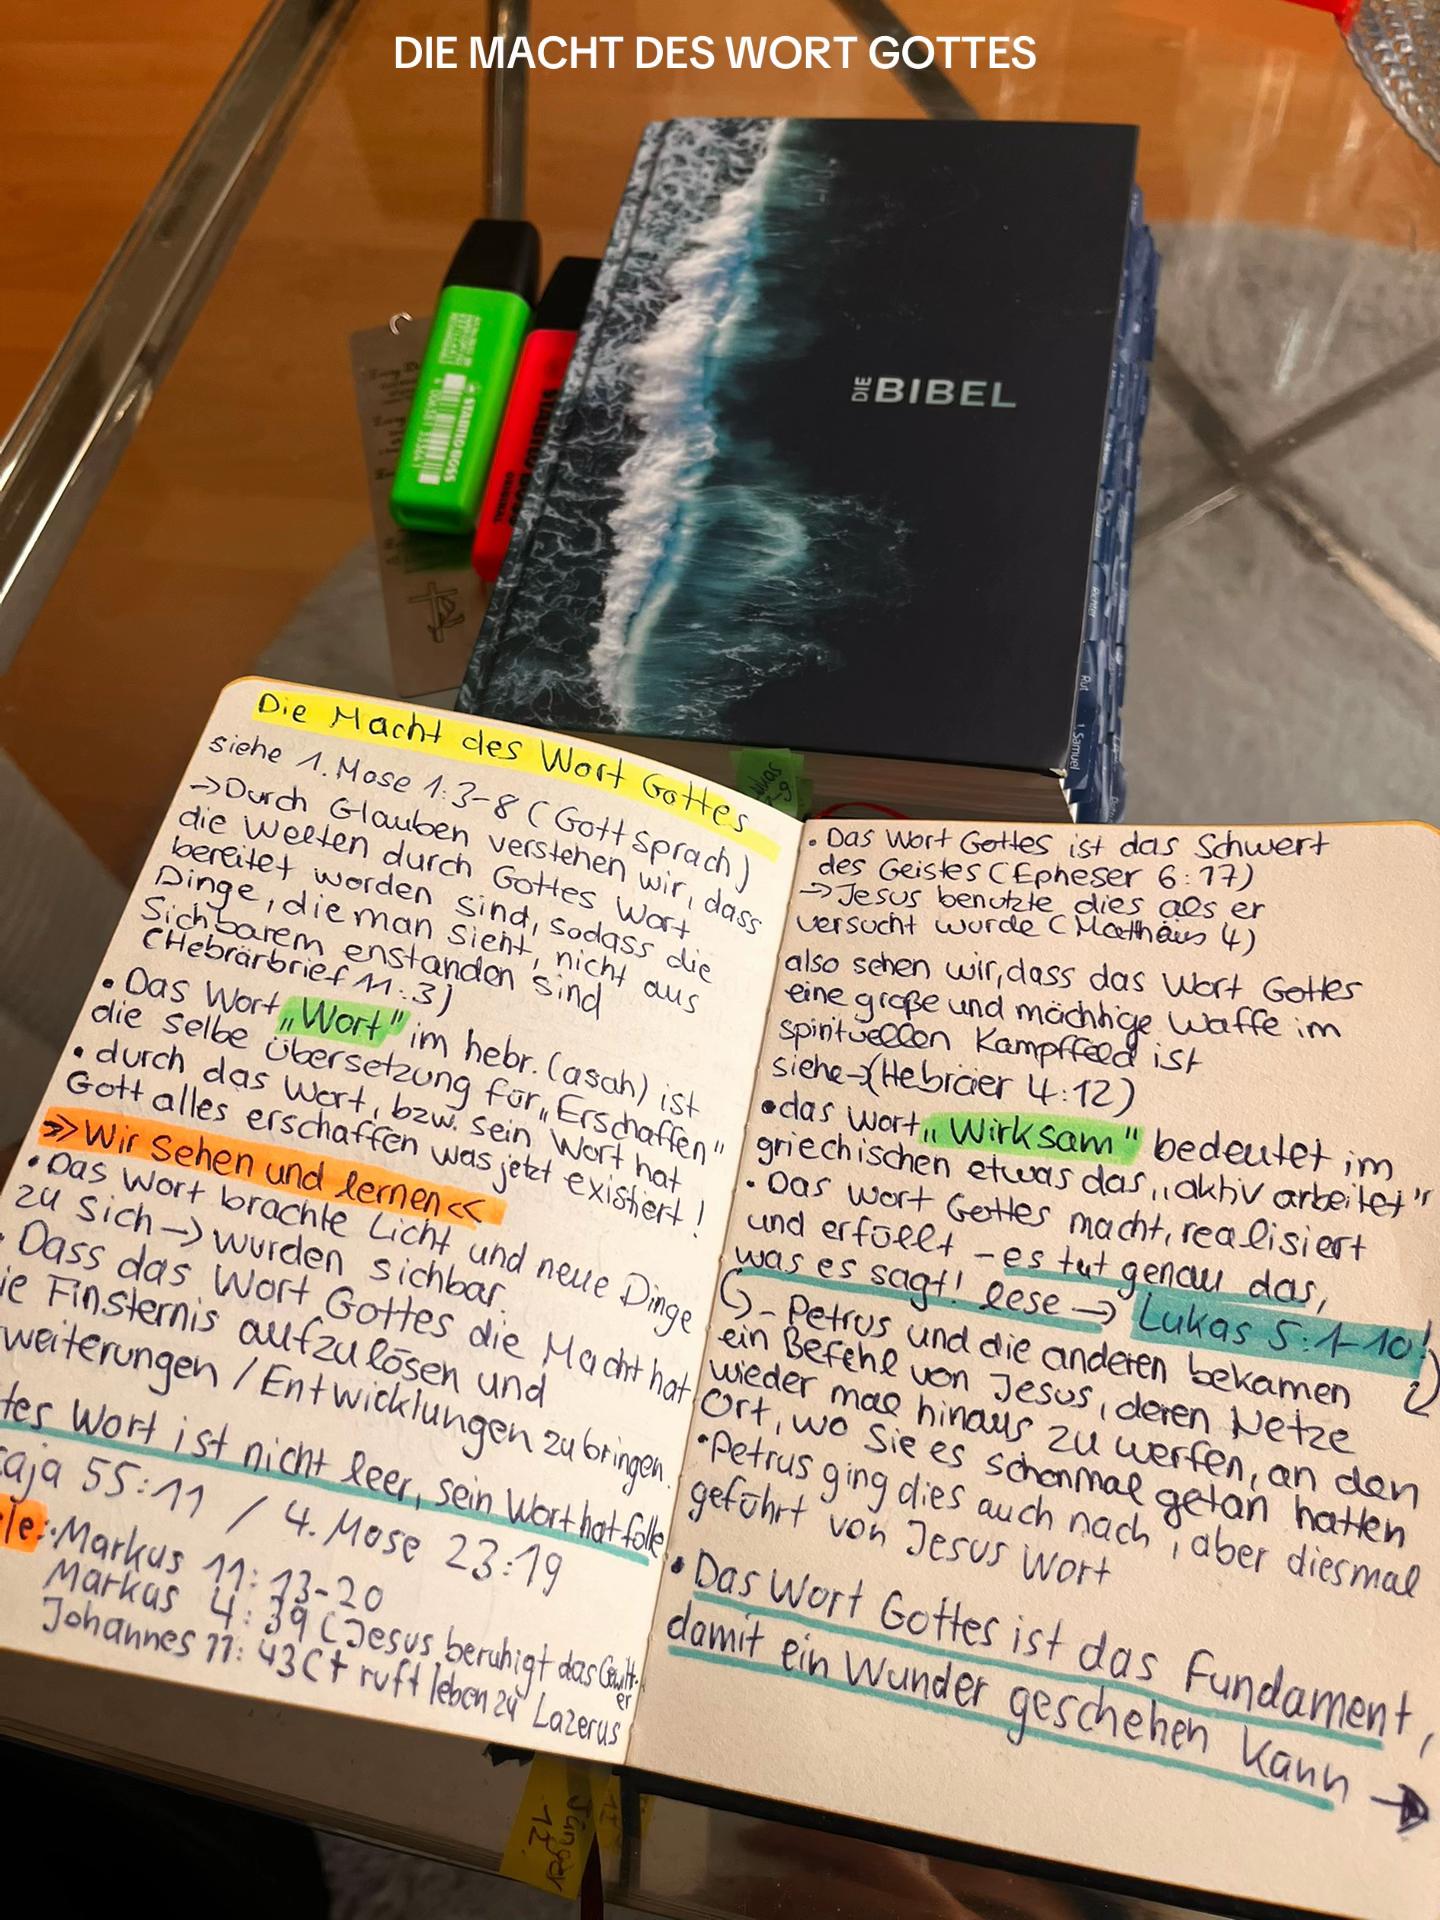 DIE MACHT DES WORT GOTTES
DIE BIBEL
STABILO BOSS
ORIGINAL
Richter
Rut
1. Samuel
Die Macht des Wort Gottes
siehe 1. Mose 1:3-8 (Gott sprach)
→Durch Glauben verstehen wir, dass
die Welten durch Gottes Wort
bereitet worden sind, sodass die
Dinge, die man sieht, nicht aus
Sichbarem enstanden sind
(Hebrärbrief 11:3)
• Das Wort „Wort" im hebr. (asah) ist
die selbe Übersetzung für „Erschaffen"
• durch das Wort, bzw. sein Wort hat
Gott alles erschaffen was jetzt existiert!
>> Wir sehen und lernen <<
• Das Wort brachte Licht und neue Dinge
zu sich → wurden sichbar.
• Dass das Wort Gottes die Macht hat
ie Finsternis aufzulösen und
weiterungen / Entwicklungen zu bringen.
tes Wort ist nicht leer, sein Wort hat fölle
aja 55:11 / 4. Mose 23:19
le: • Markus 11:13-20
Markus 4:39 (Jesus beruhigt das Gewitter
Johannes 11:43 († ruft leben zu Lazerus
• Das Wort Gottes ist das Schwert
des Geistes (Epheser 6:17)
→ Jesus benutzte dies als er
versucht wurde (Matthäus 4)
also sehen wir, dass das Wort Gottes
eine große und mächtige Waffe im
spirituellen Kampffeld ist
siehe → (Hebräer 4:12)
• das Wort „Wirksam" bedeutet im
griechischen etwas das „aktiv arbeitet"
• Das Wort Gottes macht, realisiert
und erföllt - es tut genau das,
was es sagt! lese → Lukas 5:1-10!
↳ - Petrus und die anderen bekamen
ein Befehl von Jesus, deren Netze
wieder mal hinaus zu werfen, an den
Ort, wo Sie es schonmal getan hatten
• Petrus ging dies auch nach, aber diesmal
geführt von Jesus Wort
• Das Wort Gottes ist das Fundament,
damit ein Wunder geschehen kann →
Jünger
12